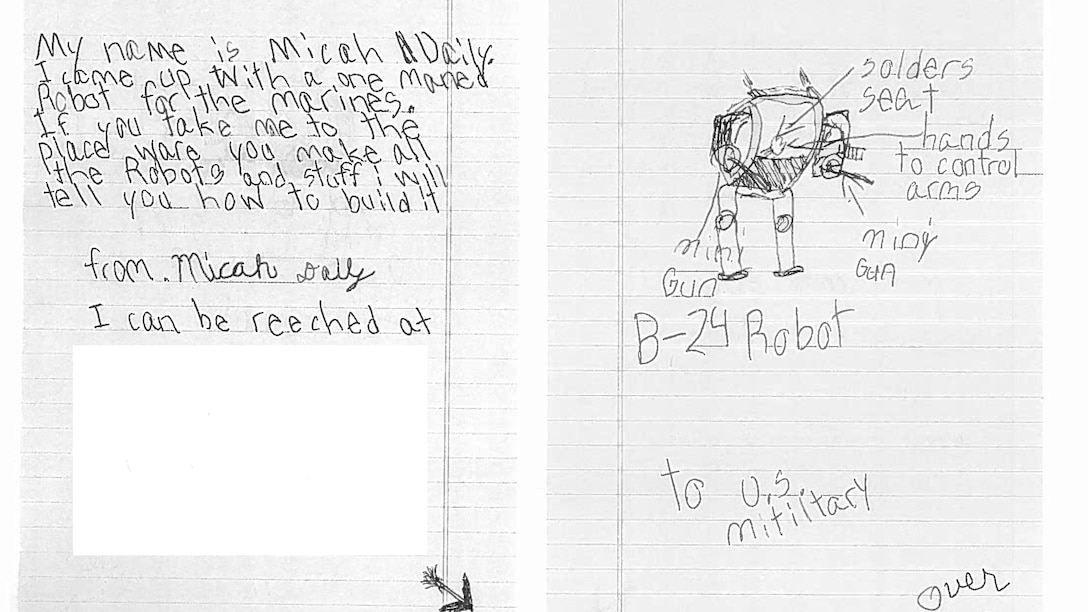 My name is Micah Daily.
I came up with a one maned
Robot for the marines.
If you take me to the
place ware you make all
the Robots and stuff i will
tell you how to build it
from. Micah Daily
I can be reeched at
solders
seat
hands
to control
arms
miny
Gun
miny
Gun
B-24 Robot
to U.S.
mitiltary
over